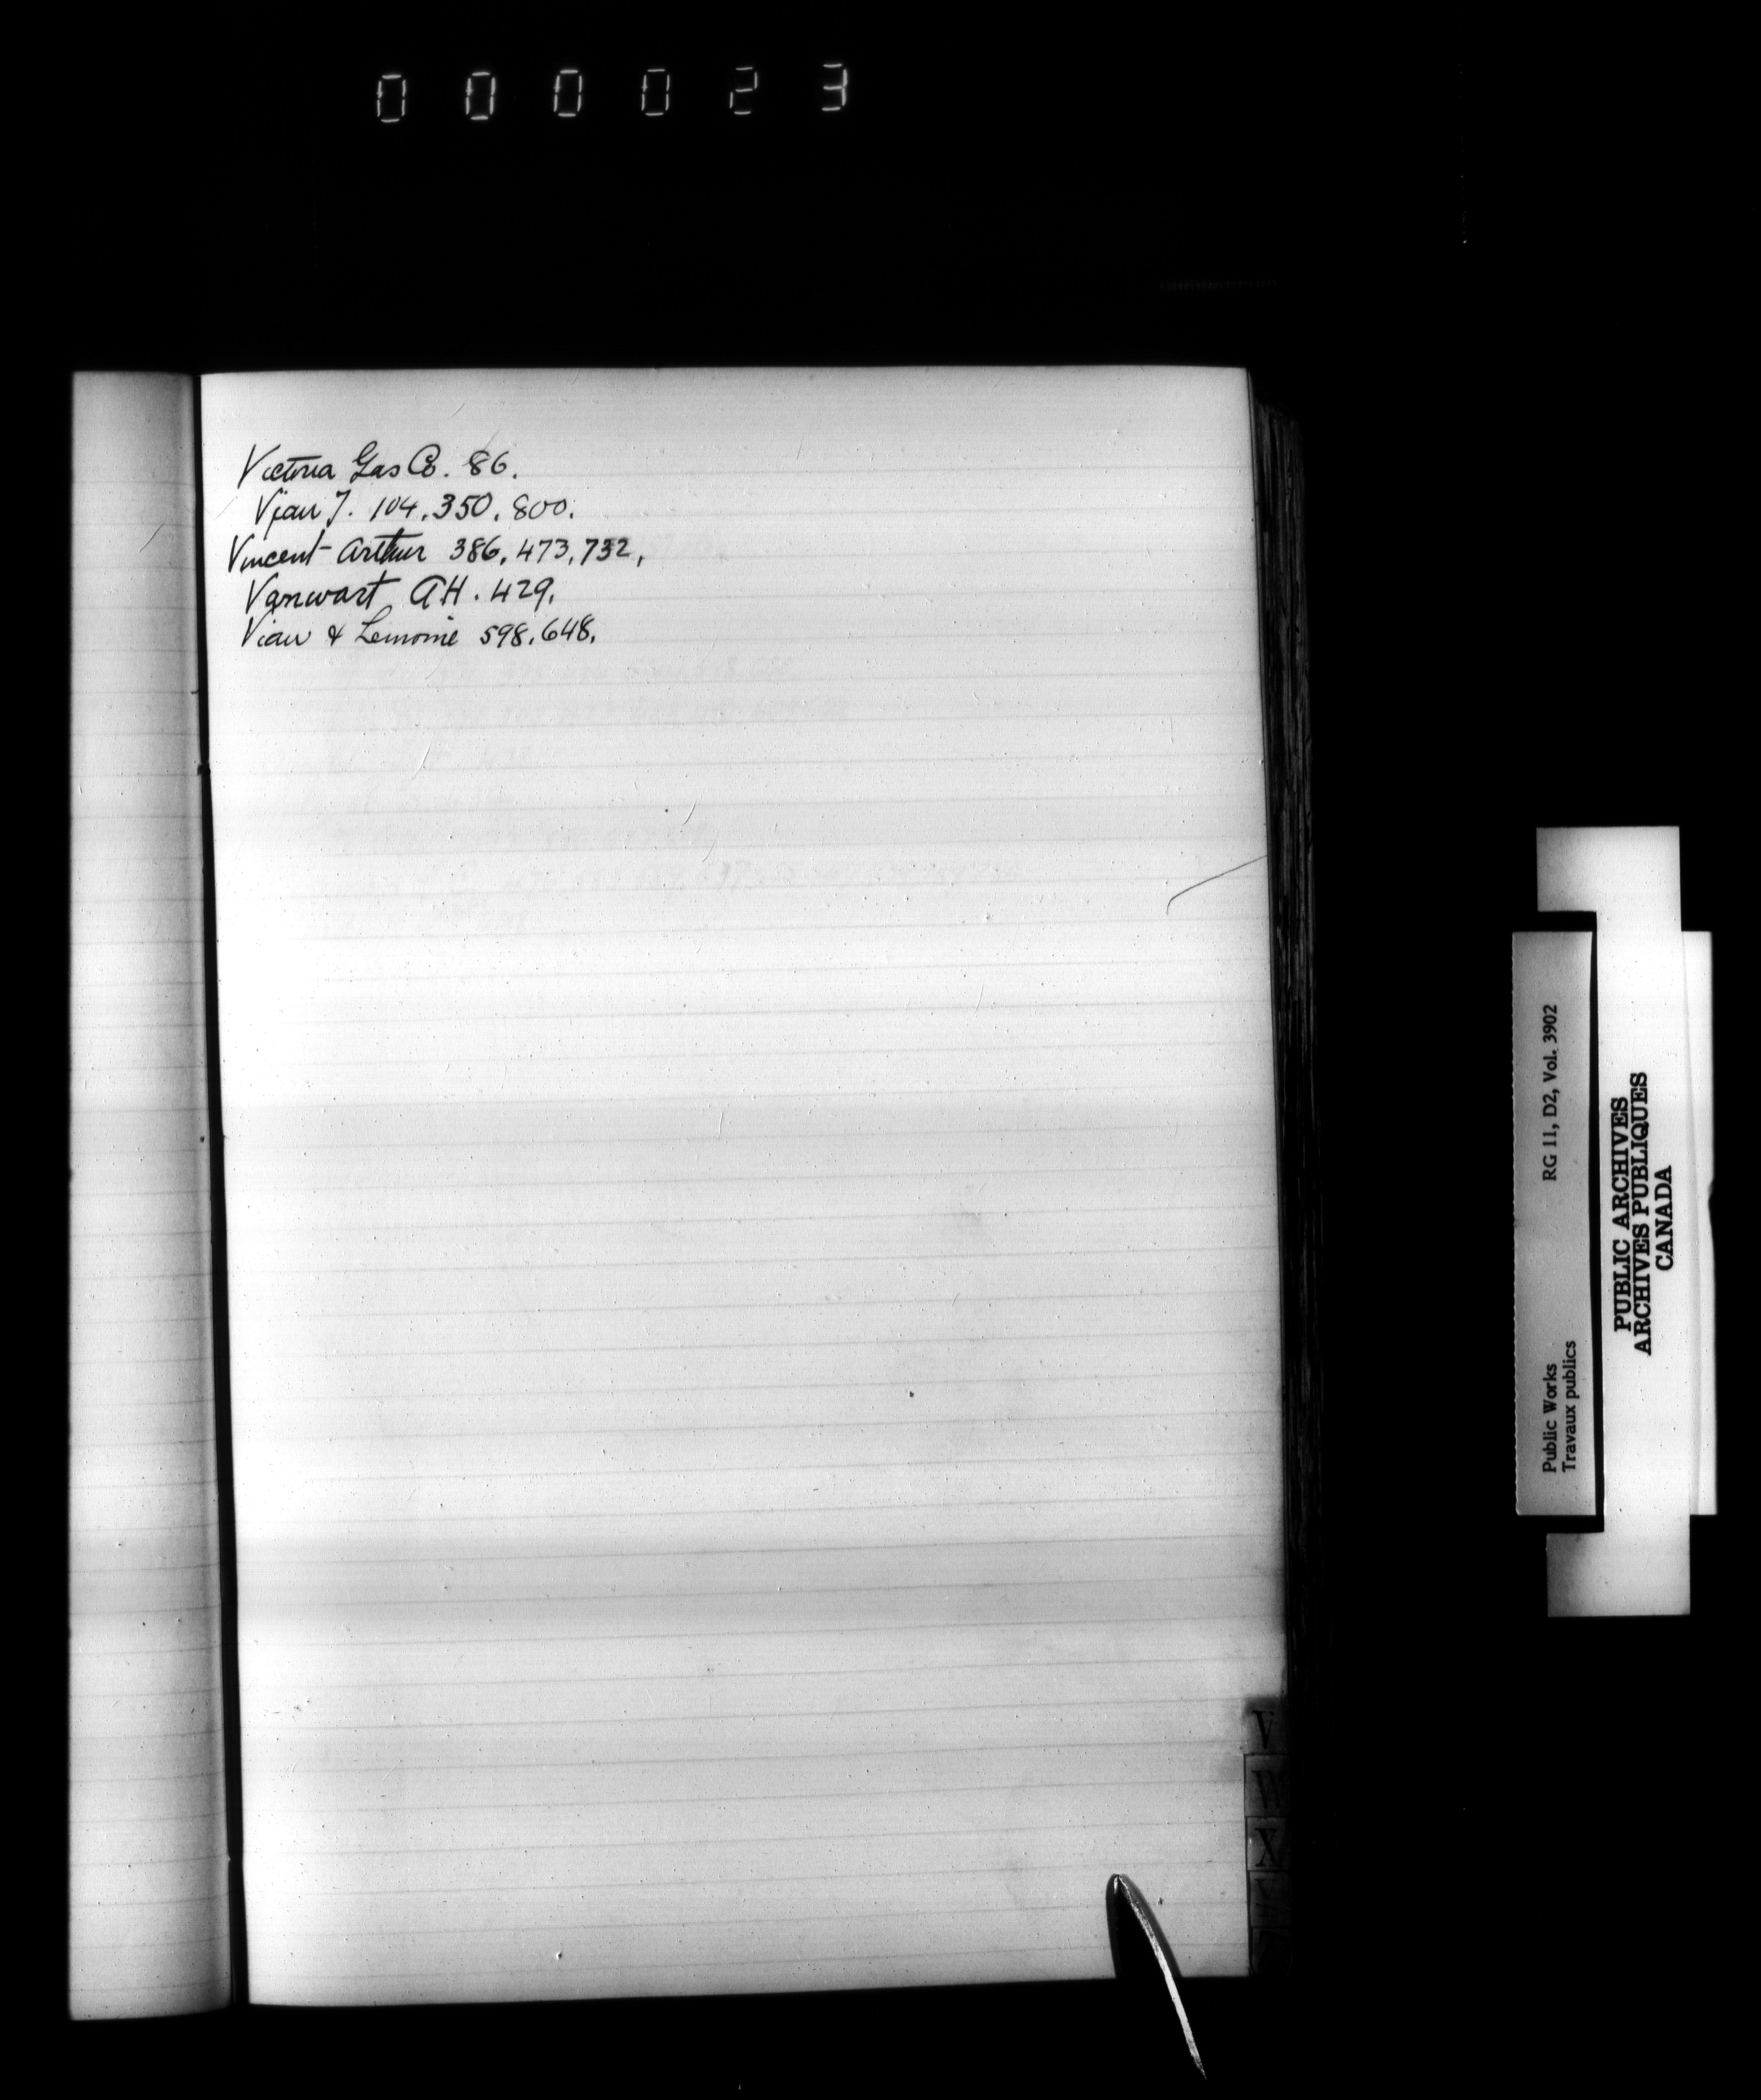 000023
Victoria Gas Co. 86.
Viau J. 104.350.800.
Vincent Arthur 386.473.732.
Vanwart AH. 429.
Viau & Lemoine 598.648.
V
W
X
Public Works
Travaux publics
RG 11, D2, Vol. 3902
PUBLIC ARCHIVES
ARCHIVES PUBLIQUES
CANADA